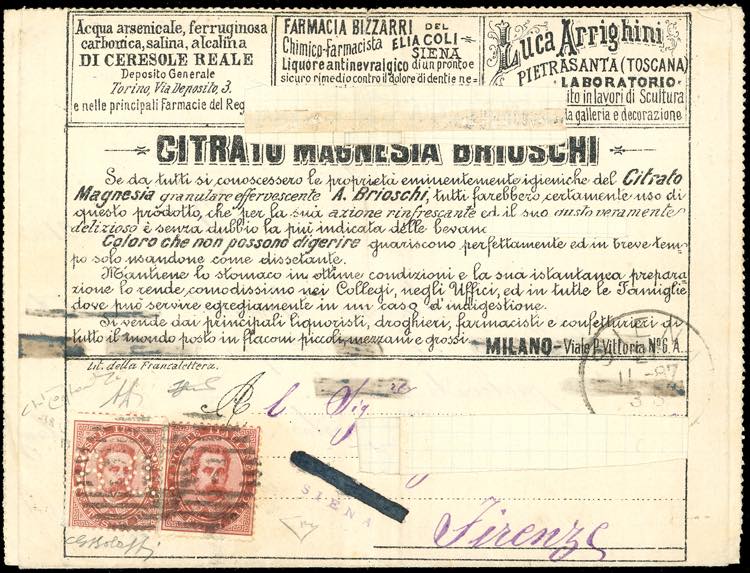 Acqua arsenicale, ferruginosa
carbonica, salina, alcalina
DI CERESOLE REALE
Deposito Generale
Torino, Via Deposito, 3.
e nelle principali Farmacie del Reg
FARMACIA BIZZARRI DEL
Chimico-Farmacista ELIA COLI-
SIENA
Liquore antinevralgico di un pronto e
sicuro rimedio contro il dolore di denti e ne-
Luca Arrighini
PIETRASANTA (TOSCANA)
LABORATORIO
ito in lavori di Scultura
ta galleria e decorazione
CITRATO MAGNESIA BRIOSCHI
Se da tutti si conoscessero le proprietà eminentemente igieniche del Citrato
Magnesia granulare effervescente A. Brioschi, tutti farebbero certamente uso di
questo prodotto, che per la sua azione rinfrescante ed il suo gusto veramente
delizioso è senza dubbio la più indicata delle bevan
Coloro che non possono digerire guariscono perfettamente ed in breve tem-
po solo usandone come dissetante.
Mantiene lo stomaco in ottime condizioni e la sua istantanea prepara
zione lo rende comodissimo nei Collegi, negli Uffici, ed in tutte le Famiglie
dove può servire egregiamente in un caso d'indigestione.
Si vende dai principali liquoristi, droghieri, farmacisti e confetturieri di
tutto il mondo posto in flaconi piccoli, mezzani e grossi - MILANO - Viale P. Vittoria No. 6. A.
Lit. della Francalettera.
11 - 87
Al Sig
SIENA
Firenze